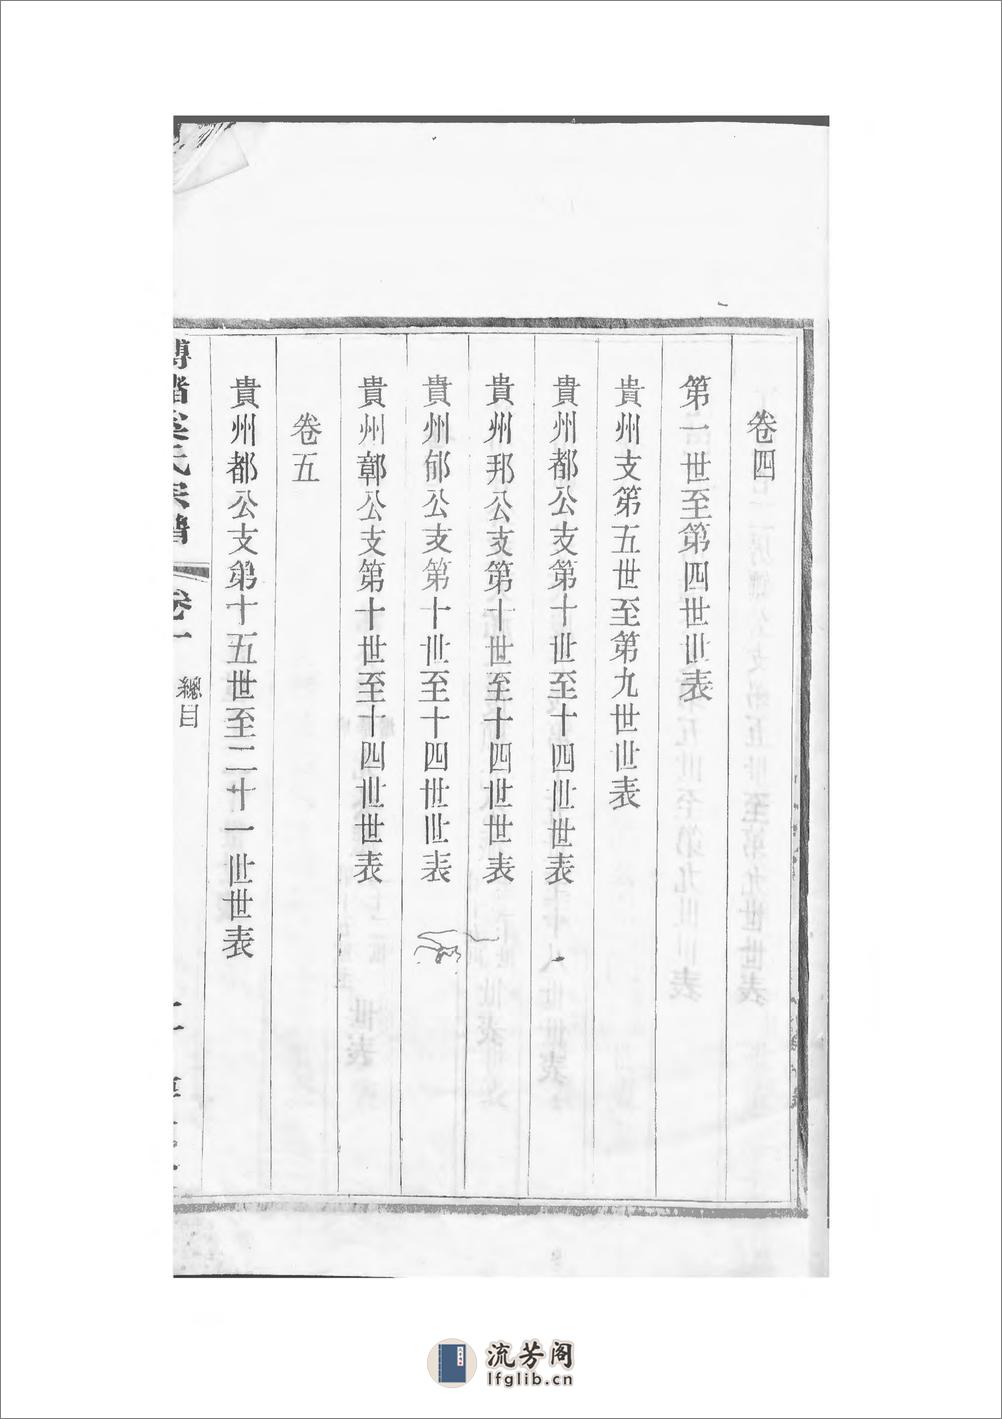 卷四
第一世至第四世世表
貴州支第五世至第九世世表
貴州都公支第十世至十四世世表
貴州邦公支第十世至十四世世表
貴州郁公支第十世至十四世世表
貴州鄣公支第十世至十四世世表
卷五
貴州都公支第十五世至二十一世世表
氏宗譜
卷一
總目
流芳阁
lfglib.cn